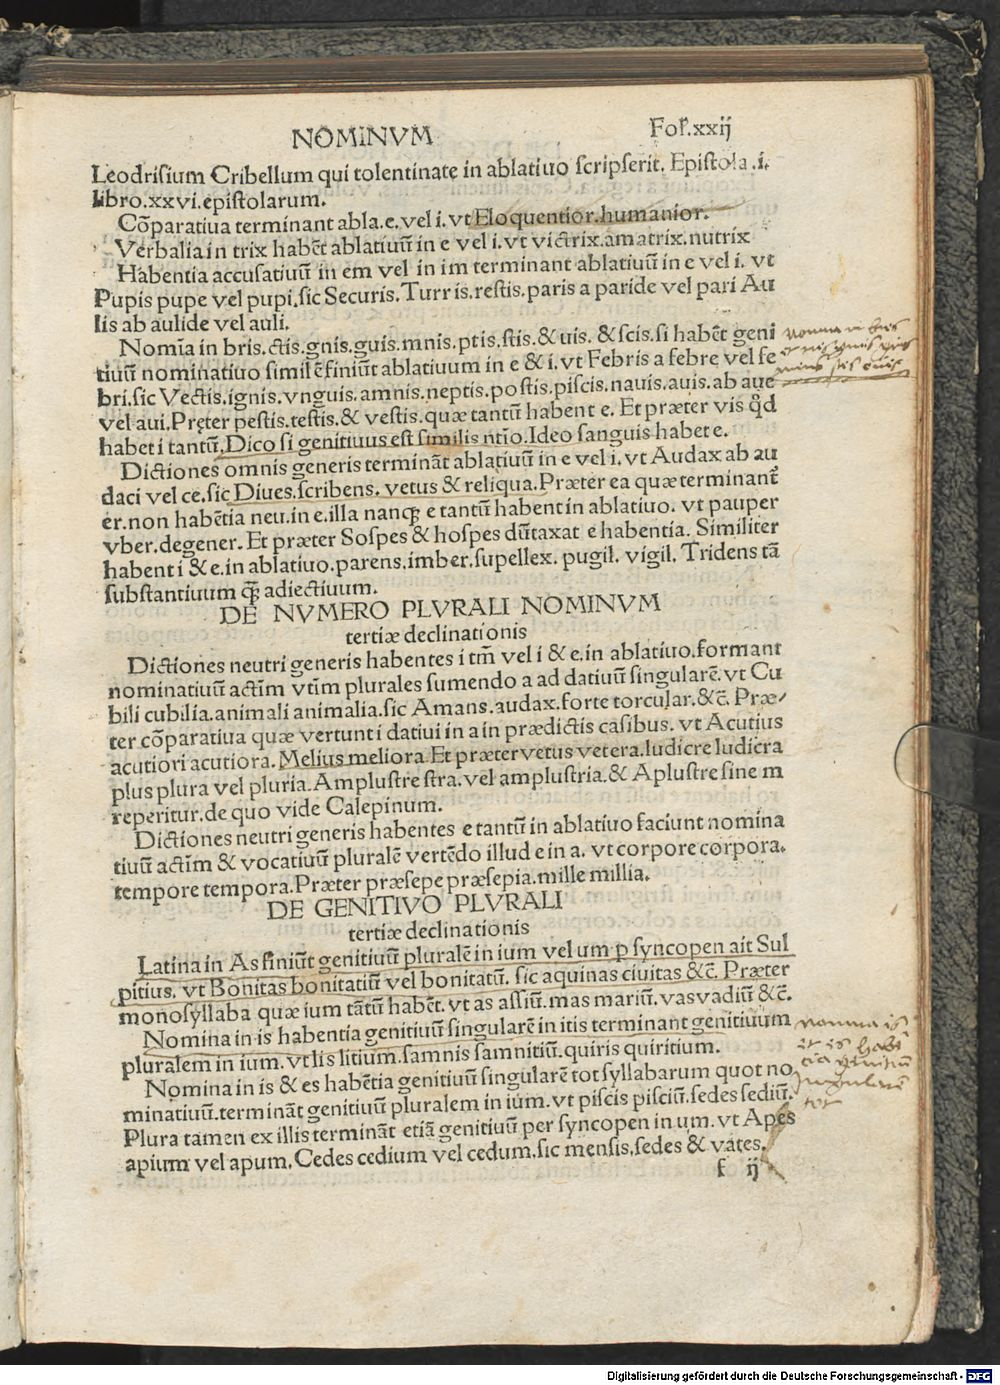 NOMINVM
Fol̃.xxij
Leodrisium Cribellum qui tolentinate in ablatiuo scripserit. Epistola.i.
libro.xxvi.epistolarum.
Cõparatiua terminant abla.e.vel i.vt Eloquentior.humanior.
Verbalia in trix habẽt ablatiuũ in e vel i.vt victrix.amatrix.nutrix
Habentia accusatiuũ in em vel in im terminant ablatiuũ in e vel i. vt
Pupis pupe vel pupi.sic Securis.Turris.restis.paris a paride vel pari Au
lis ab aulide vel auli.
Nomĩa in bris.ctis.gnis.guis.mnis.ptis.stis.& uis. & scis.si habẽt geni
tiuũ nominatiuo similẽ finiũt ablatiuum in e & i.vt Febris a febre vel fe
bri.sic Vectis.ignis.vnguis.amnis.neptis.postis.piscis.nauis.auis.ab aue
vel aui.Pręter pestis.testis.& vestis.quæ tantũ habent e. Et præter vis qd̃
habet i tantũ.Dico si genitiuus est similis ntĩo.Ideo sanguis habet e.
Dictiones omnis generis terminãt ablatiuũ in e vel i.vt Audax ab au
daci vel ce.sic Diues.scribens.vetus & reliqua.Præter ea quæ terminant̃
er.non habẽtia neu.in e.illa nanqꝫ e tantũ habent in ablatiuo. vt pauper
vber.degener. Et præter Sospes & hospes dũtaxat e habentia. Similiter
habent i & e.in ablatiuo.parens.imber.supellex. pugil. vigil. Tridens tã
substantiuum qꝫ̃ adiectiuum.
DE NVMERO PLVRALI NOMINVM
tertiæ declinationis
Dictiones neutri generis habentes i tm̃ vel i & e.in ablatiuo.formant
nominatiuũ actĩm vtĩm plurales sumendo a ad datiuũ singularẽ.vt Cu
bili cubilia.animali animalia.sic Amans.audax.forte torcular.&c̃. Præ-
ter cõparatiua quæ vertunt i datiui in a in prædictis casibus. vt Acutius
acutiori acutiora. Melius meliora.Et præter vetus vetera.ludicre ludicra
plus plura vel pluria.Amplustre stra.vel amplustria.& Aplustre sine m
reperitur.de quo vide Calepinum.
Dictiones neutri generis habentes e tantũ in ablatiuo faciunt nomina
tiuũ actĩm & vocatiuũ pluralẽ vertẽdo illud e in a. vt corpore corpora.
tempore tempora.Præter præsepe præsepia.mille millia.
DE GENITIVO PLVRALI
tertiæ declinationis
Latina in As finiũt genitiuũ pluralẽ in ium vel um p syncopen ait Sul
pitius. vt Bonitas bonitatiũ vel bonitatũ. sic aquinas ciuitas &c̃. Præter
monosyllaba quæ ium tãtũ habẽt.vt as assiũ.mas mariũ.vas vadiũ &c̃.
Nomina in is habentia genitiuũ singularẽ in itis terminant genitiuum
pluralem in ium. vt lis litium.samnis samnitiũ.quiris quiritium.
Nomina in is & es habẽtia genitiuũ singularẽ tot syllabarum quot no
minatiuũ.terminãt genitiuũ pluralem in ium.vt piscis pisciũ.sedes sediũ.
Plura tamen ex illis terminãt etiã genitiuũ per syncopen in um. vt Apes
apium vel apum. Cedes cedium vel cedum.sic mensis.sedes & vates.
f ij
nomina in bris
nomina is
et es habẽ
tia genitiuũ
singularẽ
tot
Digitalisierung gefördert durch die Deutsche Forschungsgemeinschaft - DFG